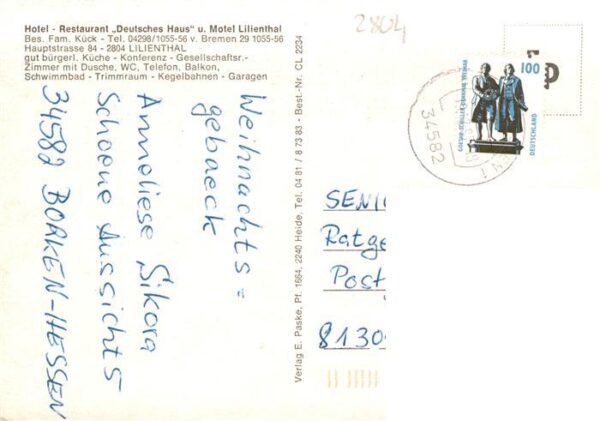 Hotel - Restaurant „Deutsches Haus" u. Motel Lilienthal
Bes. Fam. Kück - Tel. 04298/1055-56 v. Bremen 29 1055-56
Hauptstrasse 84 - 2804 LILIENTHAL
gut bürgerl. Küche - Konferenz - Gesellschaftsr.-
Zimmer mit Dusche, WC, Telefon, Balkon,
Schwimmbad - Trimmraum - Kegelbahnen - Garagen
2804
Weihnachts=
gebaeck
Anneliese Sikora
Schoene Aussicht 5
34582 BORKEN-HESSEN
Verlag E. Paske, Pf. 1664, 2240 Heide, Tel. 04 81 / 8 73 83 - Best.-Nr. CL 2234
100
DEUTSCHLAND
GOETHE-SCHILLER-DENKMAL WEIMAR
34582
SENI
Ratge
Post
8130